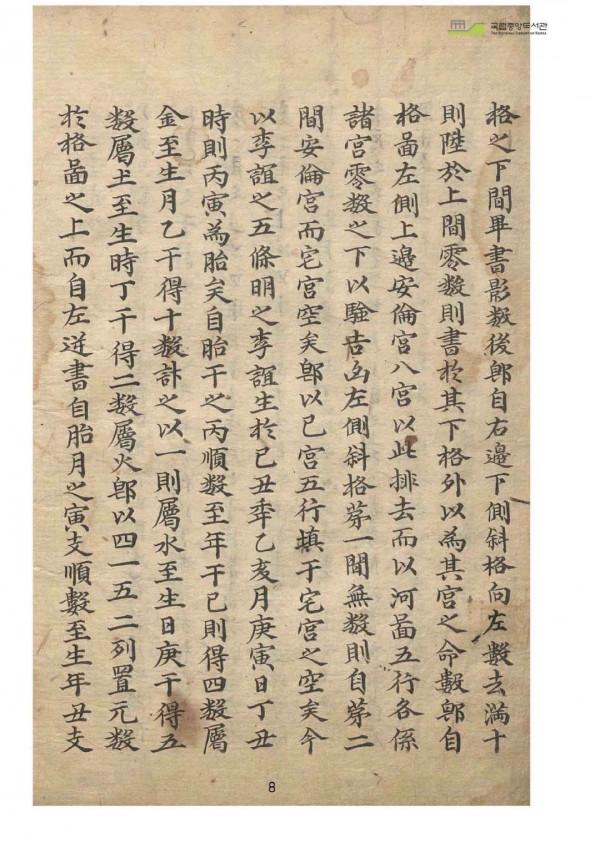 국립중앙도서관
The National Library of Korea
格之下間畢書影数後卽自右邉下側斜格向左數去滿十
則陞於上間零数則書於其下格外以為其宮之命數卽自
格畗左側上邉安倫宮八宮以此排去而以河畗五行各係
諸宮零数之下以驗吉凶左側斜格苐一間無数則自苐二
間安倫宮而宅宮空矣卽以已宮五行填于宅宮之空矣今
以李誼之五條明之李誼生於已丑秊乙亥月庚寅日丁丑
時則丙寅為胎矣自胎干之丙順数至年干已則得四数屬
金至生月乙干得十数訃之以一則屬水至生日庚干得五
数屬圡至生時丁干得二数屬火卽以四一五二列置元数
於格畗之上而自左逆書自胎月之寅支順數至生年丑支
8